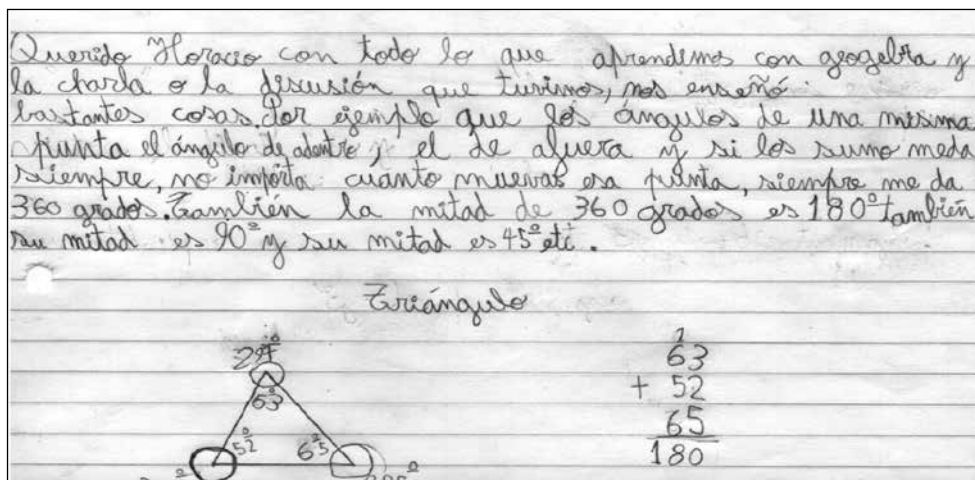 Querido Horacio con todo lo que aprendimos con geogebra y
la charla o la discusión que tuvimos, nos enseñó
bastantes cosas. Por ejemplo que los ángulos de una misma
punta el ángulo de adentro, y el de afuera y si los sumo meda
siempre, no importa cuánto muevas esa punta, siempre me da
360 grados. También la mitad de 360 grados es 180º también
su mitad es 90º y su mitad es 45º etc.
Triángulo
297º
63º
52º
65º
1
63
+ 52
65
180